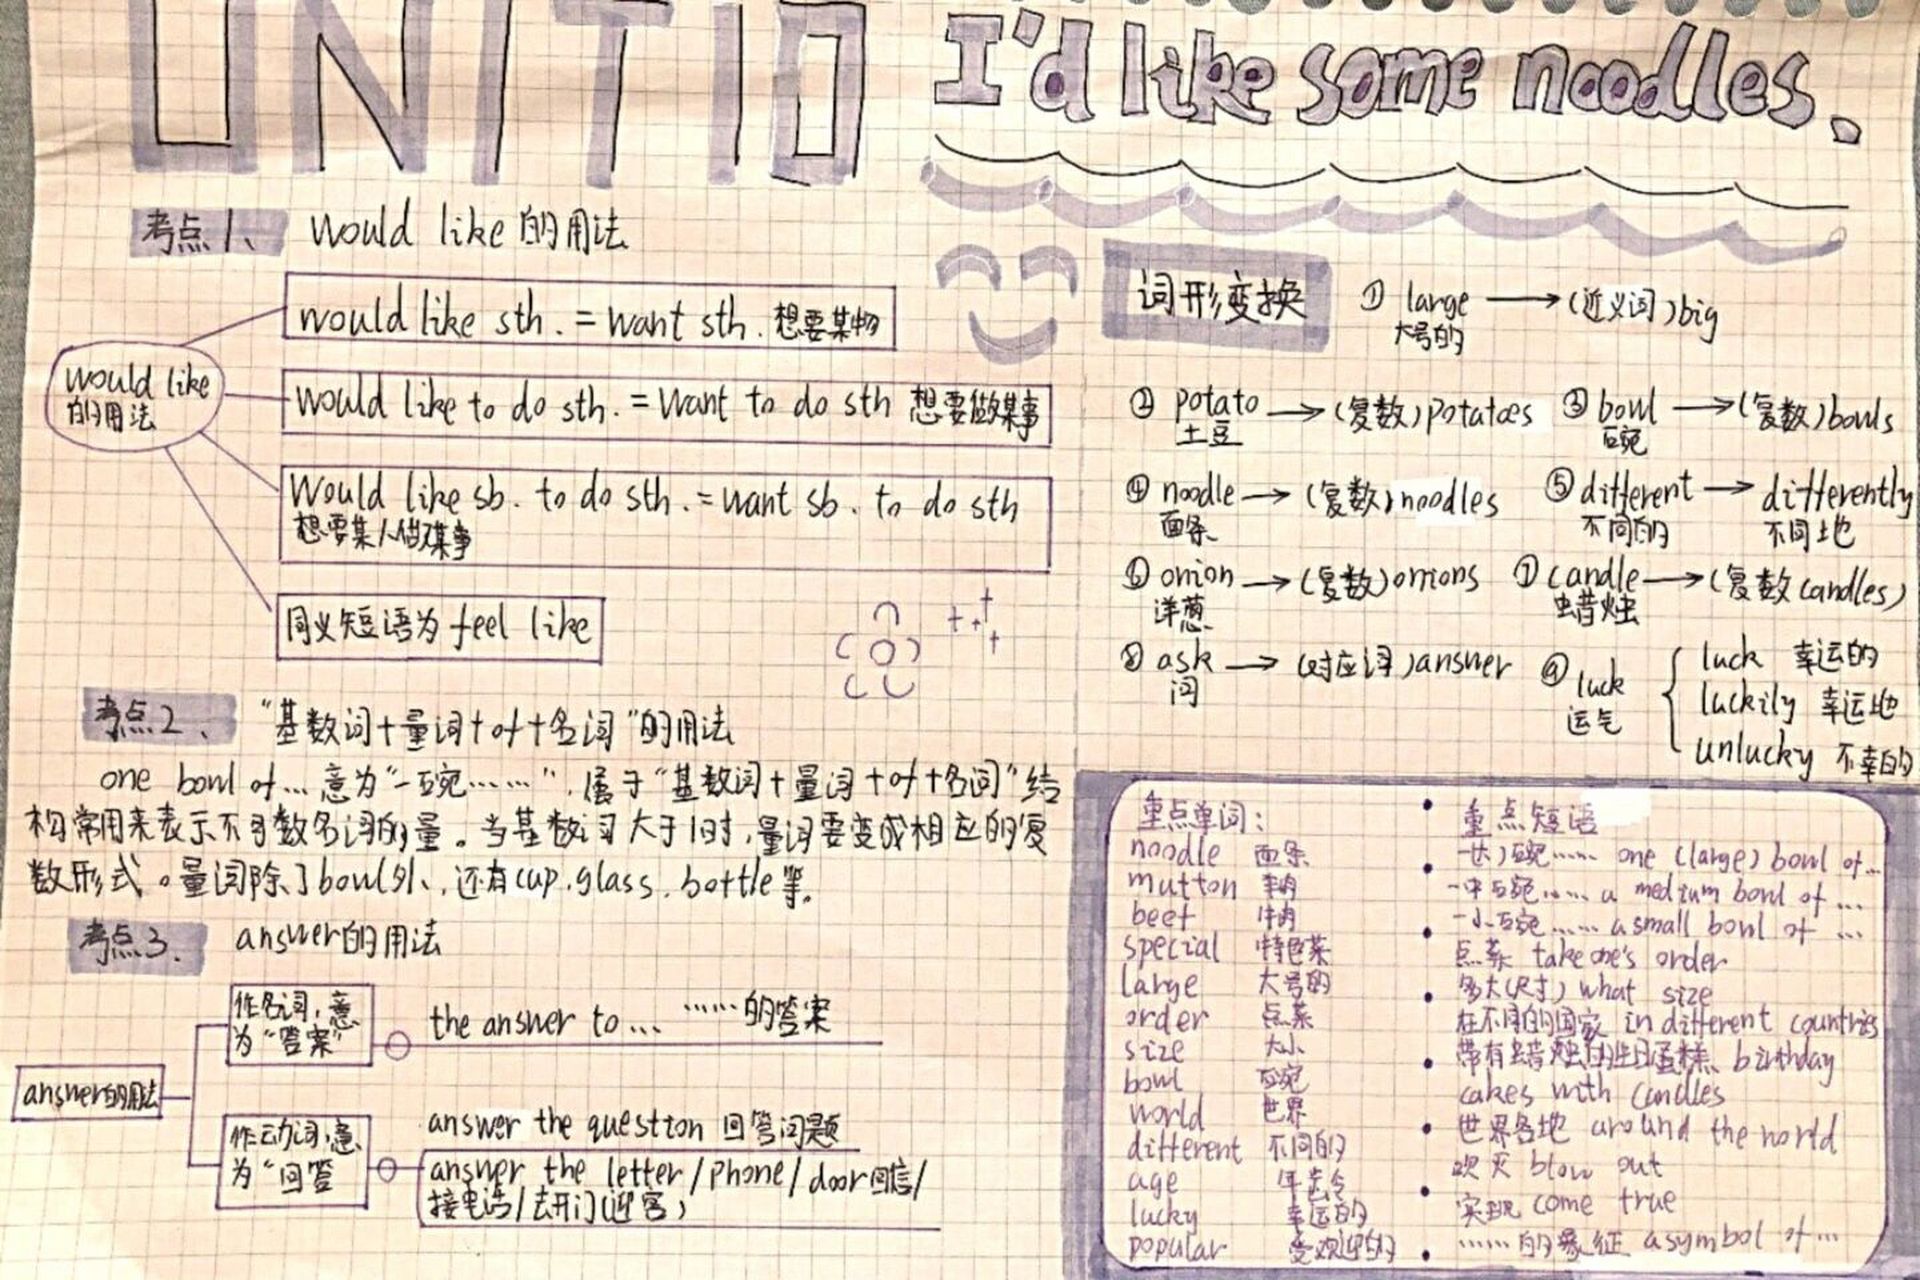 UNIT 10
I'd like some noodles.
考点1、 would like 的用法
would like 的用法
would like sth. = want sth. 想要某物
would like to do sth. = want to do sth 想要做某事
Would like sb. to do sth. = want sb. to do sth
想要某人做某事
同义短语为 feel like
考点2、 “基数词+量词+of+名词”的用法
one bowl of... 意为“一碗……”, 属于“基数词+量词+of+名词”结
构常用来表示不可数名词的量。当基数词大于1时,量词要变成相应的复
数形式。量词除了bowl外、还有cup.glass.bottle等。
考点3. answer的用法
answer的用法
作名词,意为“答案”
the answer to... ……的答案
作动词,意为“回答
answer the question 回答问题
answer the letter/phone/door回信/
接电话/去开门(迎客)
词形变换
① large 大号的 → (近义词)big
② potato 土豆 → (复数)potatoes
③ bowl 碗 → (复数)bowls
④ noodle 面条 → (复数)noodles
⑤ different 不同的 → differently 不同地
⑥ onion 洋葱 → (复数)onions
⑦ candle 蜡烛 → (复数candles)
⑧ ask 问 → (对应词)answer
⑨ luck 运气
luck 幸运的
luckily 幸运地
unlucky 不幸的
重点单词:
noodle 面条
mutton 羊肉
beef 牛肉
special 特色菜
large 大号的
order 点菜
size 大小
bowl 碗
world 世界
different 不同的
age 年龄
lucky 幸运的
popular 受欢迎的
重点短语
一(大)碗…… one (large) bowl of...
一中碗…… a medium bowl of ...
一小碗…… a small bowl of ...
点菜 take one's order
多大(尺寸) what size
在不同的国家 in different countries
带有蜡烛的生日蛋糕 birthday
cakes with candles
世界各地 around the world
吹灭 blow out
实现 come true
……的象征 a symbol of ...